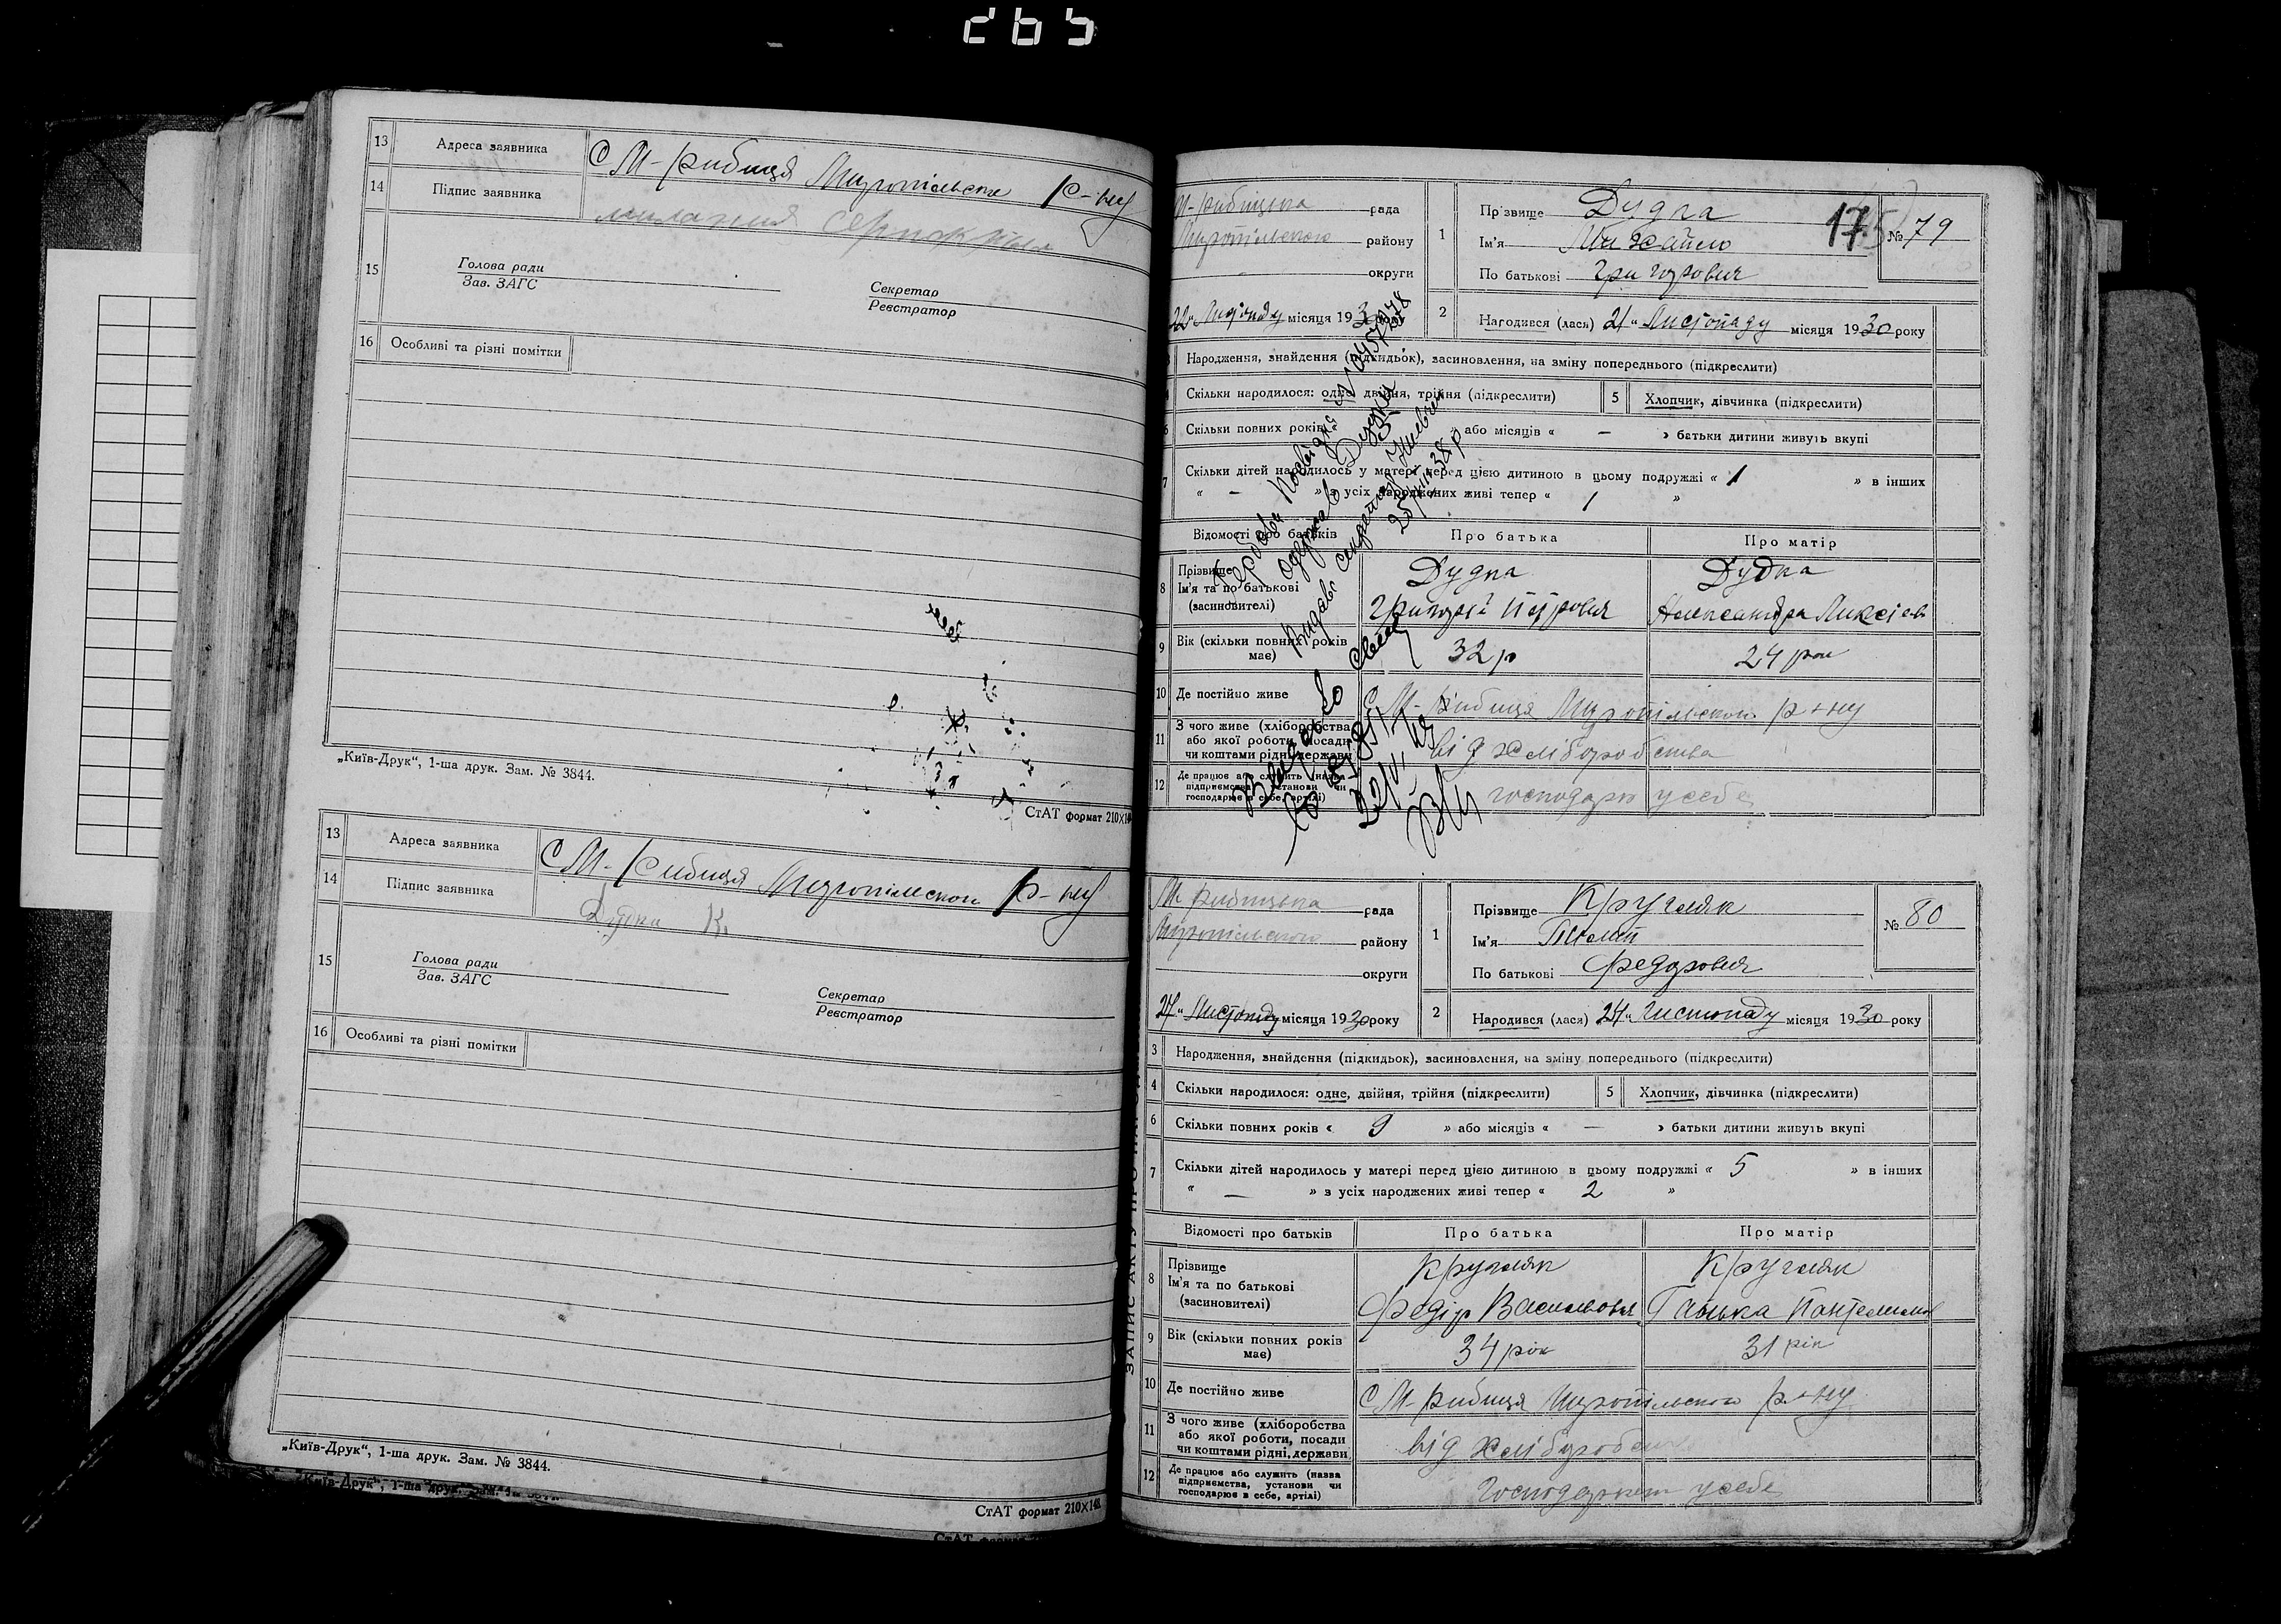 265
13 Адреса заявника С М-Рибиця Миропільского Р-ну
14 Підпис заявника
15 Голова ради
Зав. ЗАГС
Секретар
Реєстратор
16 Особливі та різні помітки
„Київ-Друк“, 1-ша друк. Зам. № 3844.
СтАТ формат 210×148
13 Адреса заявника С М-Рибиця Миропільского Р-ну
14 Підпис заявника Дудка К.
15 Голова ради
Зав. ЗАГС
Секретар
Реєстратор
16 Особливі та різні помітки
„Київ-Друк“, 1-ша друк. Зам. № 3844.
СтАТ формат 210×148
М-Рибицька рада
Миропільського району
округи
22 Листопаду місяця 1930
1 Прізвище Дудка
Ім'я Михайло
По батькові Григорович
175
№ 79
2 Народився (лася) 21 „ Листопаду місяця 1930 року
Народження, знайдення (підкидьок), засиновлення, на зміну попереднього (підкреслити)
Скільки народилося: одне, двійня, трійня (підкреслити) 5 Хлопчик, дівчинка (підкреслити)
Скільки повних років » або місяців « — » батьки дитини живуть вкупі
7 Скільки дітей народилось у матері перед цією дитиною в цьому подружжі « 1 » в інших
« — » з усіх народжених живі тепер « 1 »
Відомості про батьків Про батька Про матір
8 Прізвище Дудка Дудка
Ім'я та по батькові
(засиновителі) Григорій Петрович Александра Ликсіев
9 Вік (скільки повних років має) 32 р 24 рок
10 Де постійно живе С М-Рибиця Миропільского р-ну
11 З чого живе (хліборобства
або якої роботи, посади
чи коштами рідні, держави від хліборобства
12 Де працює або служить (назва
підприємства, установи чи
господарює в себе, артілі) господарю у себе
одержав Дудка
25/III 38 р
М Рибицька рада
Миропільского району
округи
27 „ Листопаду місяця 1930 року
1 Прізвище Кругляк
Ім'я
По батькові Федорович
№ 80
2 Народився (лася) 24 „ Листопаду місяця 1930 року
3 Народження, знайдення (підкидьок), засиновлення, на зміну попереднього (підкреслити)
4 Скільки народилося: одне, двійня, трійня (підкреслити) 5 Хлопчик, дівчинка (підкреслити)
6 Скільки повних років « 9 » або місяців « — » батьки дитини живуть вкупі
7 Скільки дітей народилось у матері перед цією дитиною в цьому подружжі « 5 » в інших
« — » з усіх народжених живі тепер « 2 »
Відомості про батьків Про батька Про матір
8 Прізвище Кругляк Кругляк
Ім'я та по батькові
(засиновителі) Федір Васильович Ганька Пантелимов
9 Вік (скільки повних років має) 34 рок 31 рік
10 Де постійно живе С М-Рибиця Миропільского р-ну
11 З чого живе (хліборобства
або якої роботи, посади
чи коштами рідні, держави від хліборобства
12 Де працює або служить (назва
підприємства, установи чи
господарює в себе, артілі) господарюет у себе
ЗАПИС АКТУ ПРО НАРОДЖЕННЯ